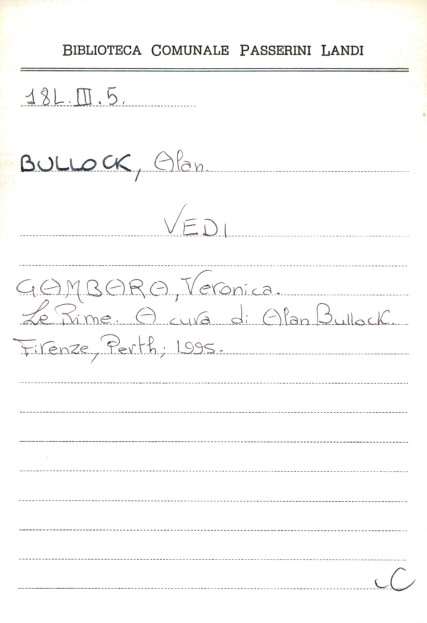 BIBLIOTECA COMUNALE PASSERINI LANDI
18L.III.5.
BULLOCK, Alan.
VEDI
GAMBARA, Veronica.
Le Rime. A cura di Alan Bullock.
Firenze, Perth; 1995.
C